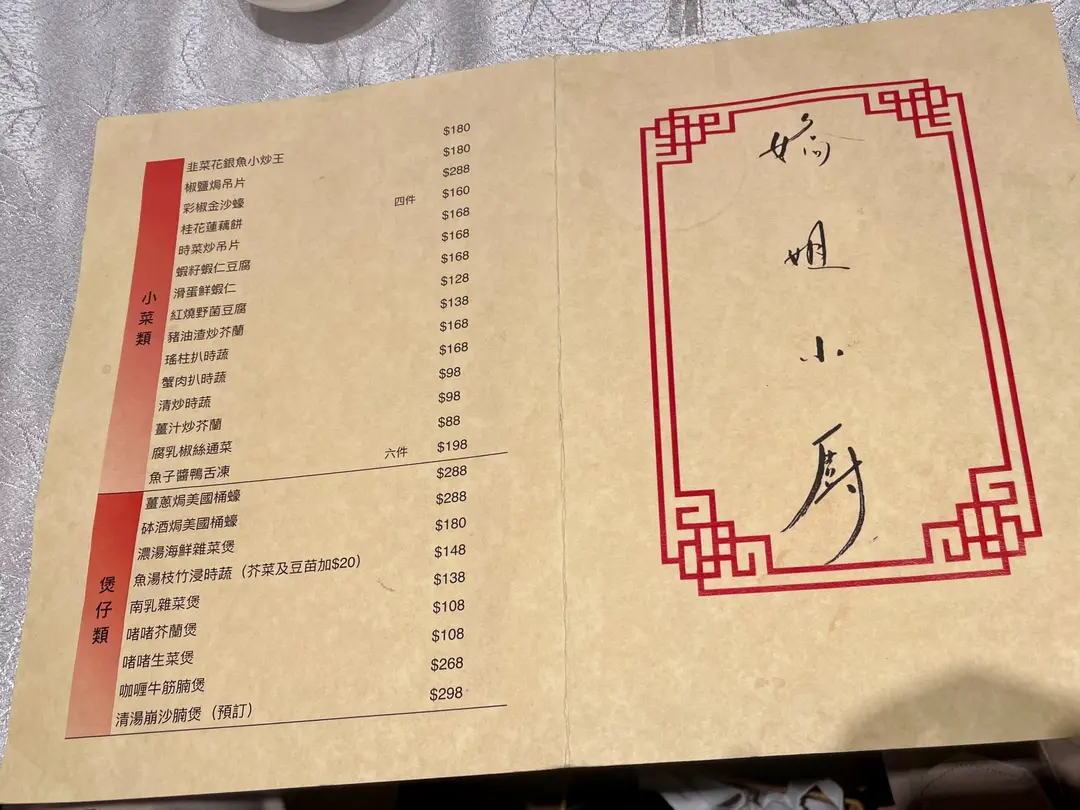 小菜類
韭菜花銀魚小炒王 $180
椒鹽焗吊片 $180
彩椒金沙蠔 $288
桂花蓮藕餅 四件 $160
時菜炒吊片 $168
蝦籽蝦仁豆腐 $168
滑蛋鮮蝦仁 $168
紅燒野菌豆腐 $128
豬油渣炒芥蘭 $138
瑤柱扒時蔬 $168
蟹肉扒時蔬 $168
清炒時蔬 $98
薑汁炒芥蘭 $98
腐乳椒絲通菜 $88
魚子醬鴨舌凍 六件 $198
煲仔類
薑蔥焗美國桶蠔 $288
砵酒焗美國桶蠔 $288
濃湯海鮮雜菜煲 $180
魚湯枝竹浸時蔬（芥菜及豆苗加$20） $148
南乳雜菜煲 $138
啫啫芥蘭煲 $108
啫啫生菜煲 $108
咖喱牛筋腩煲 $268
清湯崩沙腩煲（預訂） $298
嬌姐小厨